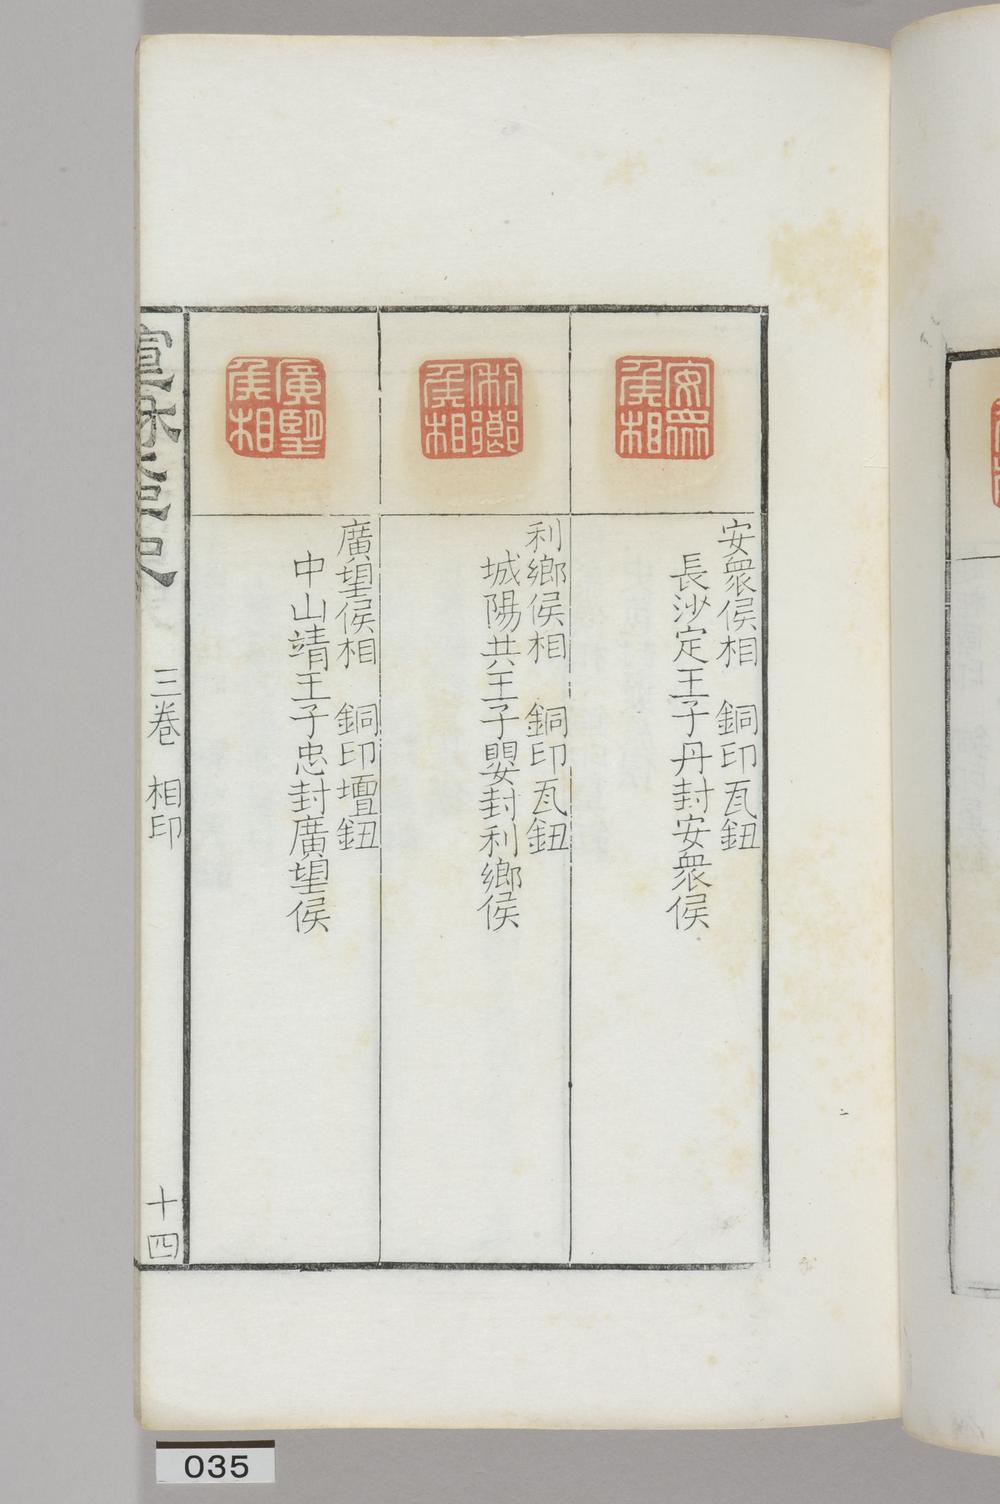 安衆
侯相
安衆侯相　銅印瓦鈕
長沙定王子丹封安衆侯
利鄉
侯相
利鄉侯相　銅印瓦鈕
城陽共王子嬰封利鄉侯
廣望
侯相
廣望侯相　銅印壇鈕
中山靖王子忠封廣望侯
三卷　相印
十四
035